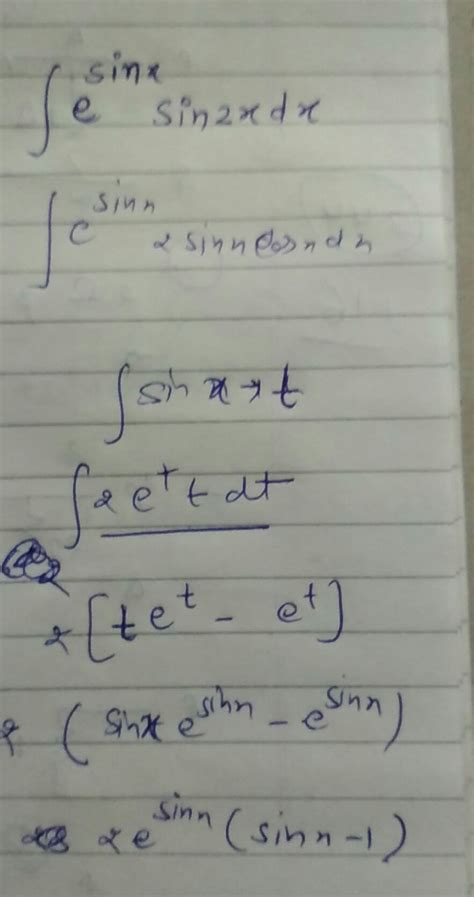 ∫ e^sinx sin2x dx
∫ e^sinn 2 sinn cosn dn
∫ sin x → t
∫ 2 e^t t dt
2 [te^t - e^t]
2 (sinx e^sinn - e^sinn)
2e^sinn (sinn-1)